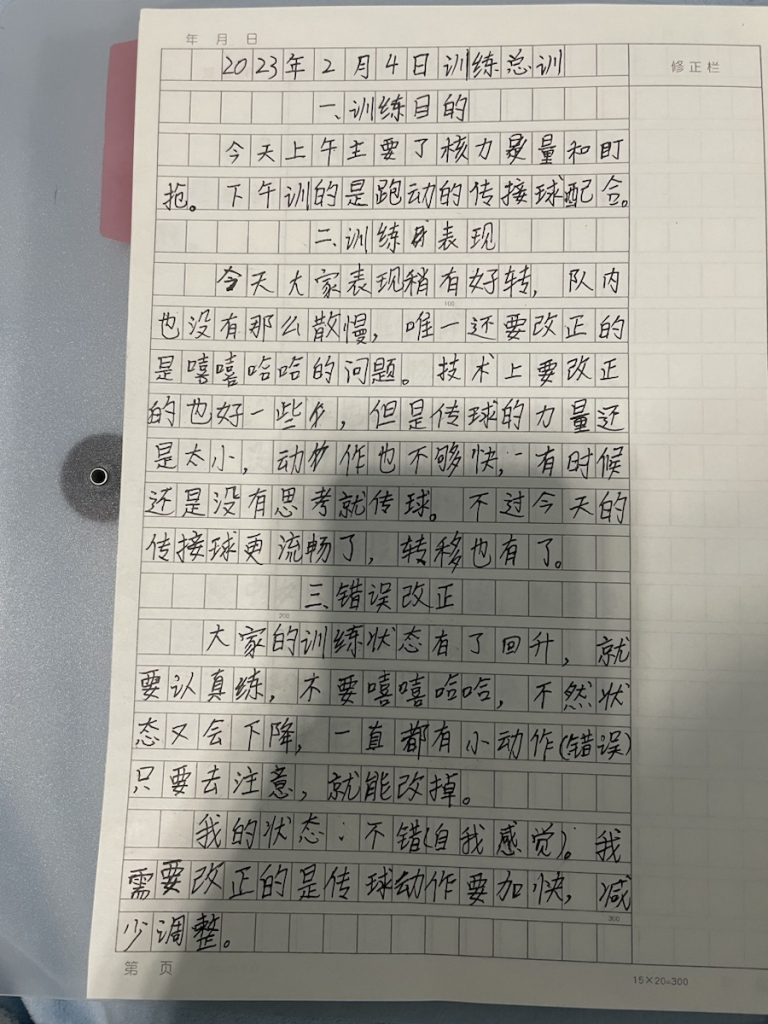 年 月 日
修正栏
2023年2月4日训练总训
一、训练目的
今天上午主要了核力量和盯
抢。下午训的是跑动的传接球配合。
二、训练表现
今天大家表现稍有好转，队内
100
也没有那么散慢，唯一还要改正的
是嘻嘻哈哈的问题。技术上要改正
的也好一些，但是传球的力量还
是太小，动作也不够快，有时候
还是没有思考就传球。不过今天的
传接球更流畅了，转移也有了。
三、错误改正
200
大家的训练状态有了回升，就
要认真练，不要嘻嘻哈哈，不然状
态又会下降，一直都有小动作(错误)
只要去注意，就能改掉。
我的状态：不错(自我感觉)。我
需要改正的是传球动作要加快，减
300
少调整。
第 页
15×20=300